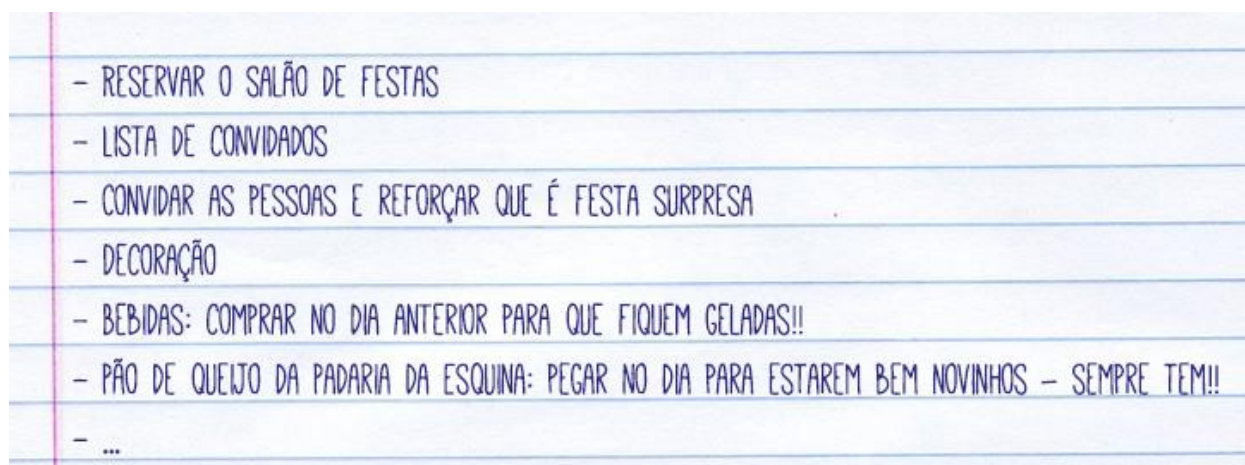 - RESERVAR O SALÃO DE FESTAS
- LISTA DE CONVIDADOS
- CONVIDAR AS PESSOAS E REFORÇAR QUE É FESTA SURPRESA
- DECORAÇÃO
- BEBIDAS: COMPRAR NO DIA ANTERIOR PARA QUE FIQUEM GELADAS!!
- PÃO DE QUEIJO DA PADARIA DA ESQUINA: PEGAR NO DIA PARA ESTAREM BEM NOVINHOS – SEMPRE TEM!!
- ...